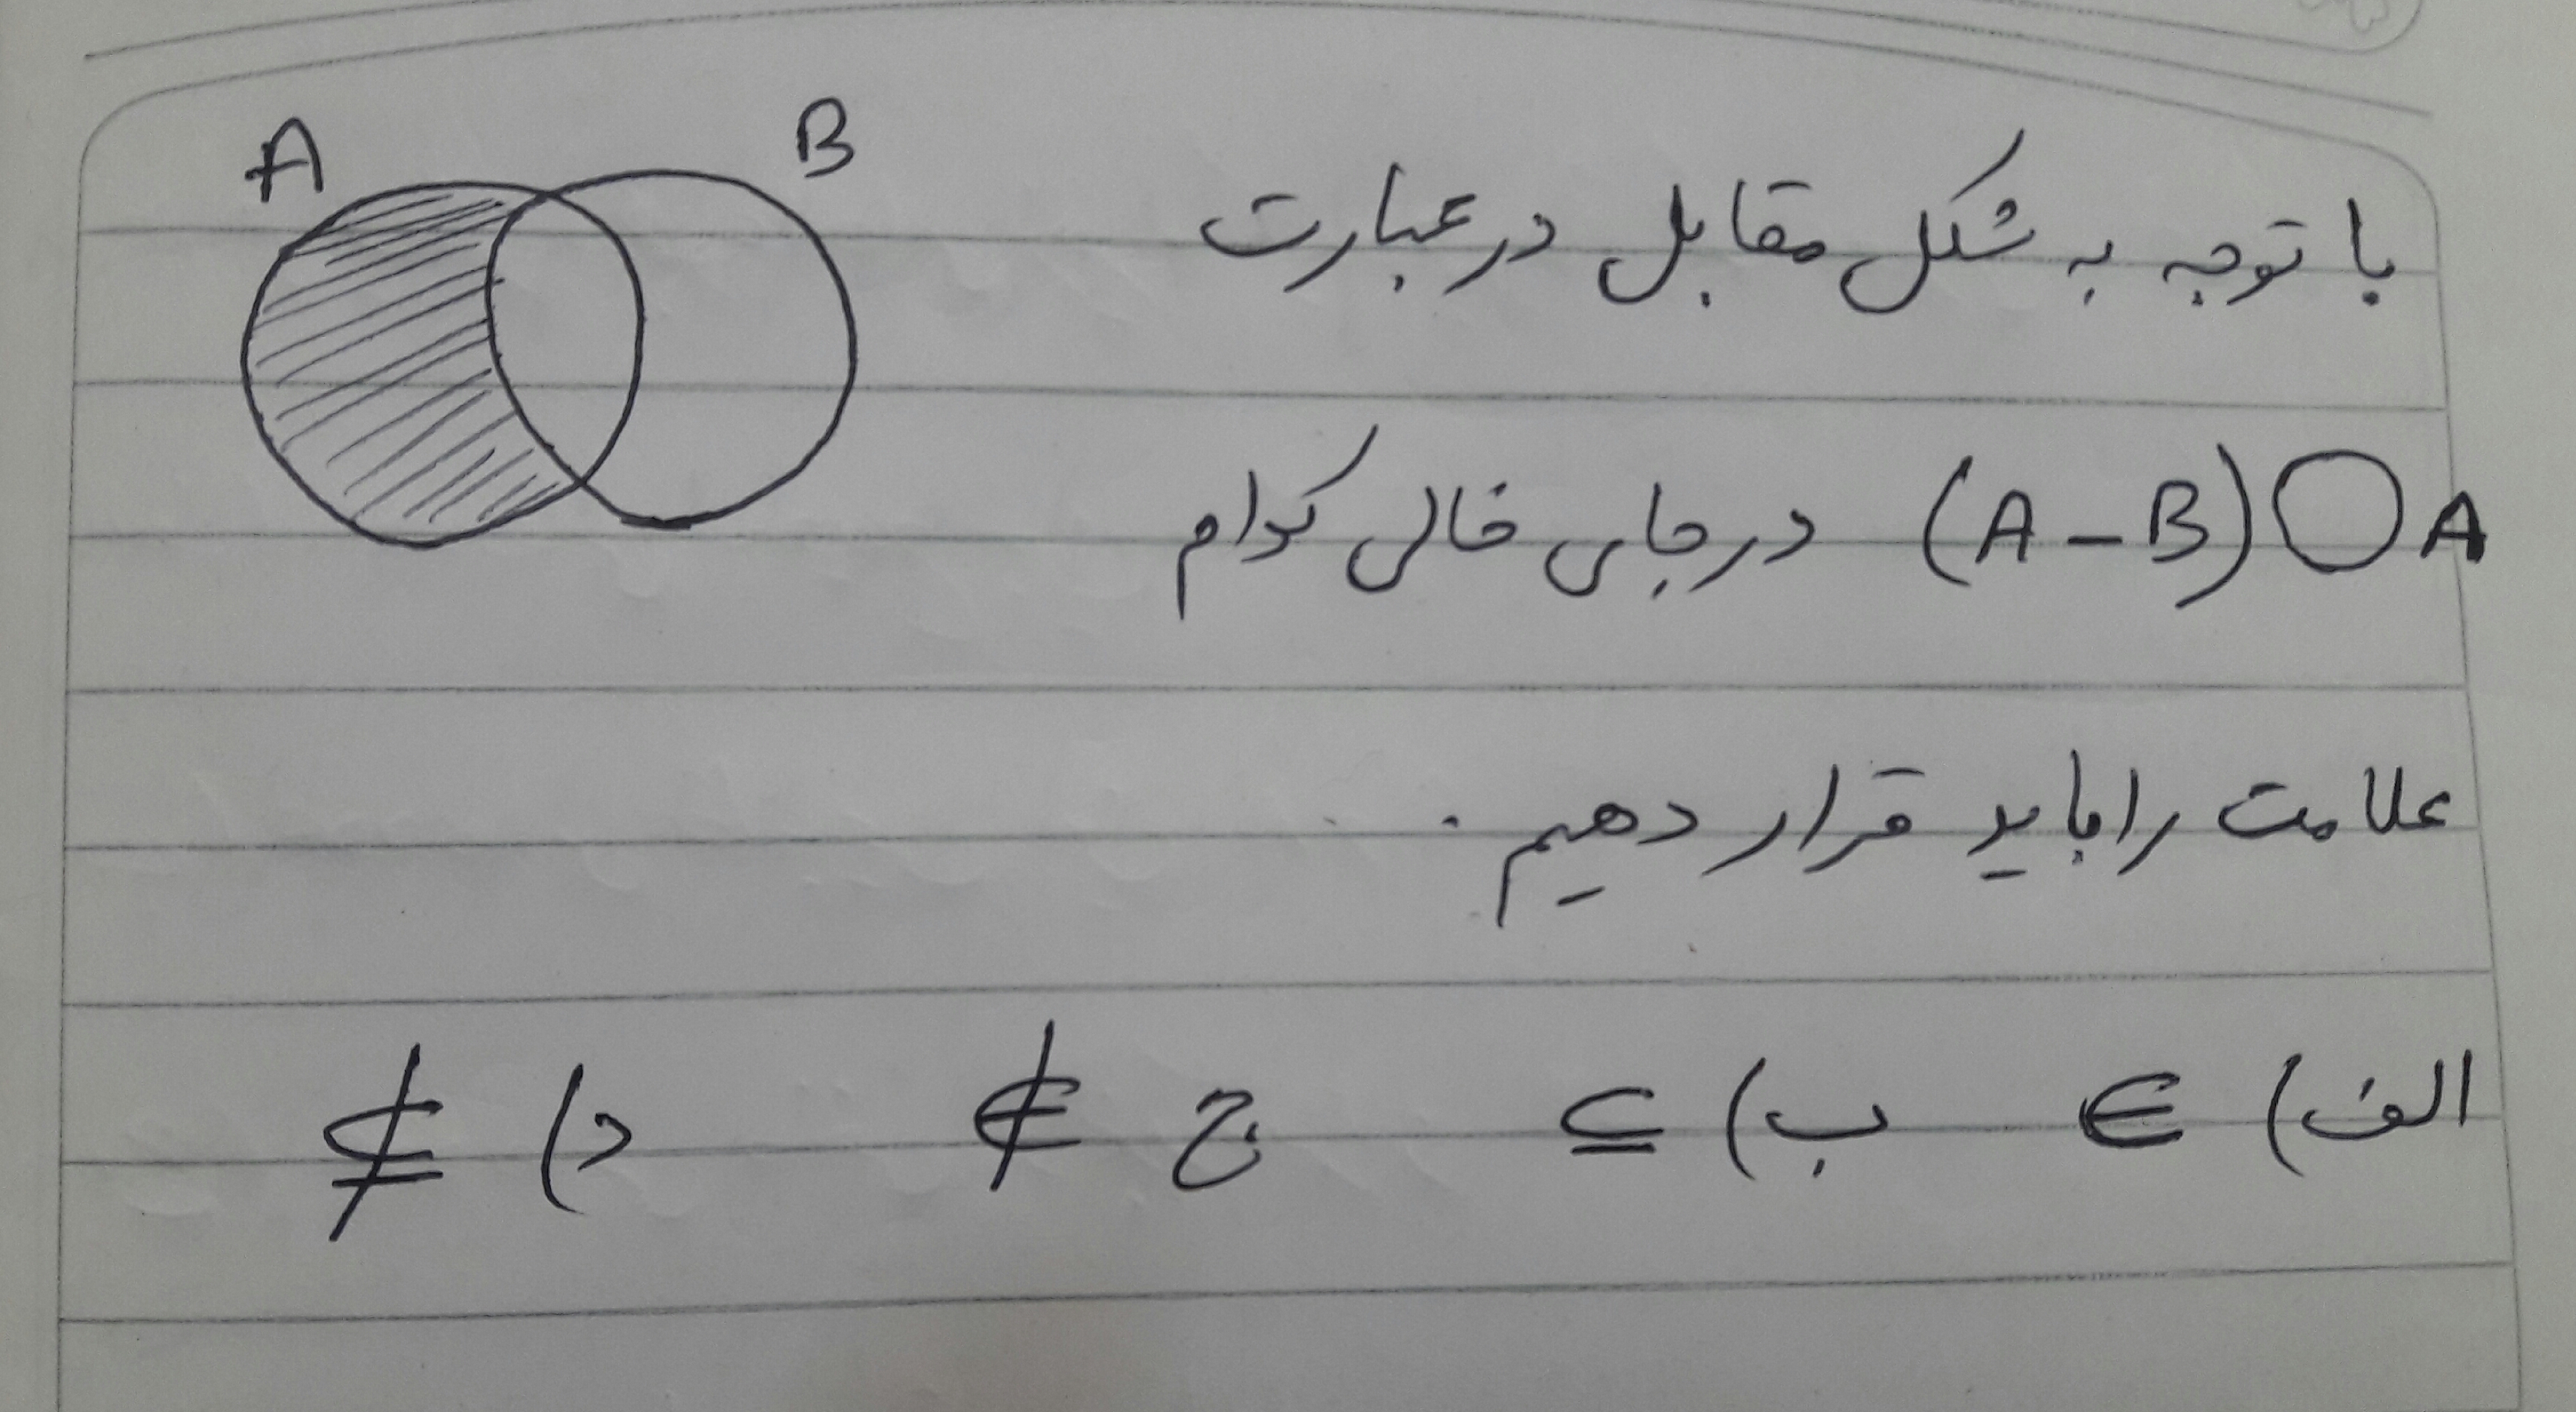 A B
با توجه به شکل مقابل در عبارت
(A-B)○A در جای خالی کدام
علامت را باید قرار دهیم.
الف) ∈ ب) ⊆ ج ∉ د) ⊈